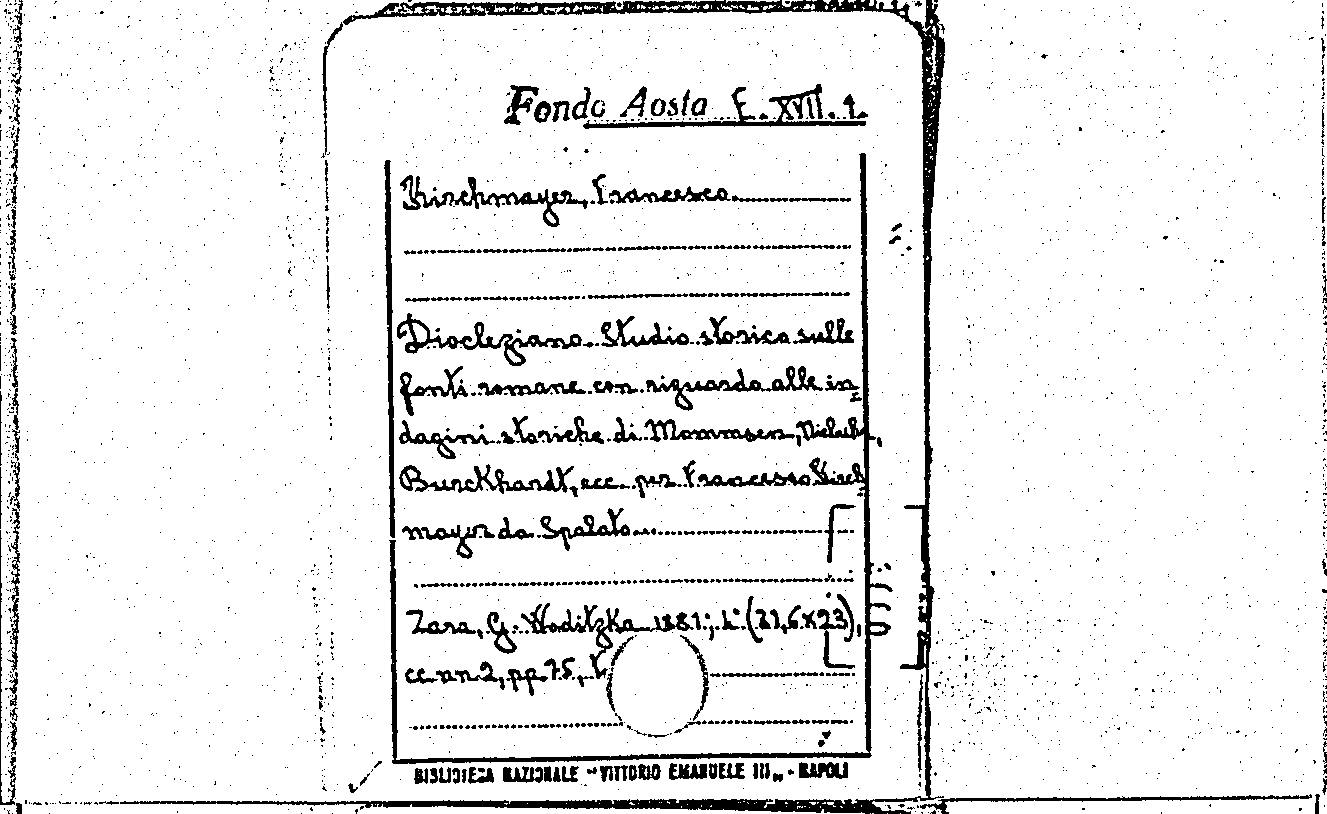 Fondo Aosta E. XVII. 1.
Kirchmayer, Francesco
Diocleziano. Studio storico sulle
fonti romane con riguardo alle in=
dagini storiche di Mommsen,
Burckhardt, ecc. per Francesco Kirch=
mayer da Spalato
Zara, G. Woditzka 1881; 4° (31,6x23),
cc. nn. 2, pp. 75,
BIBLIOTECA NAZIONALE "VITTORIO EMANUELE III" - NAPOLI